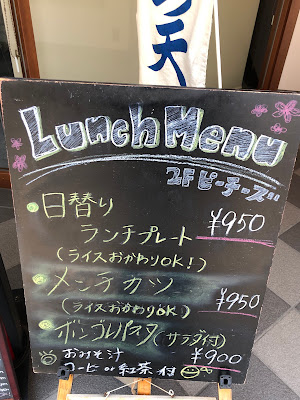 天
Lunch Menu
2F ピーチーズ
日替り
ランチプレート ¥950
(ライスおかわりOK!)
メンチカツ
(ライスおかわりOK) ¥950
ボンゴレパスタ (サラダ付)
おみそ汁 ¥900
コーヒー or 紅茶 付